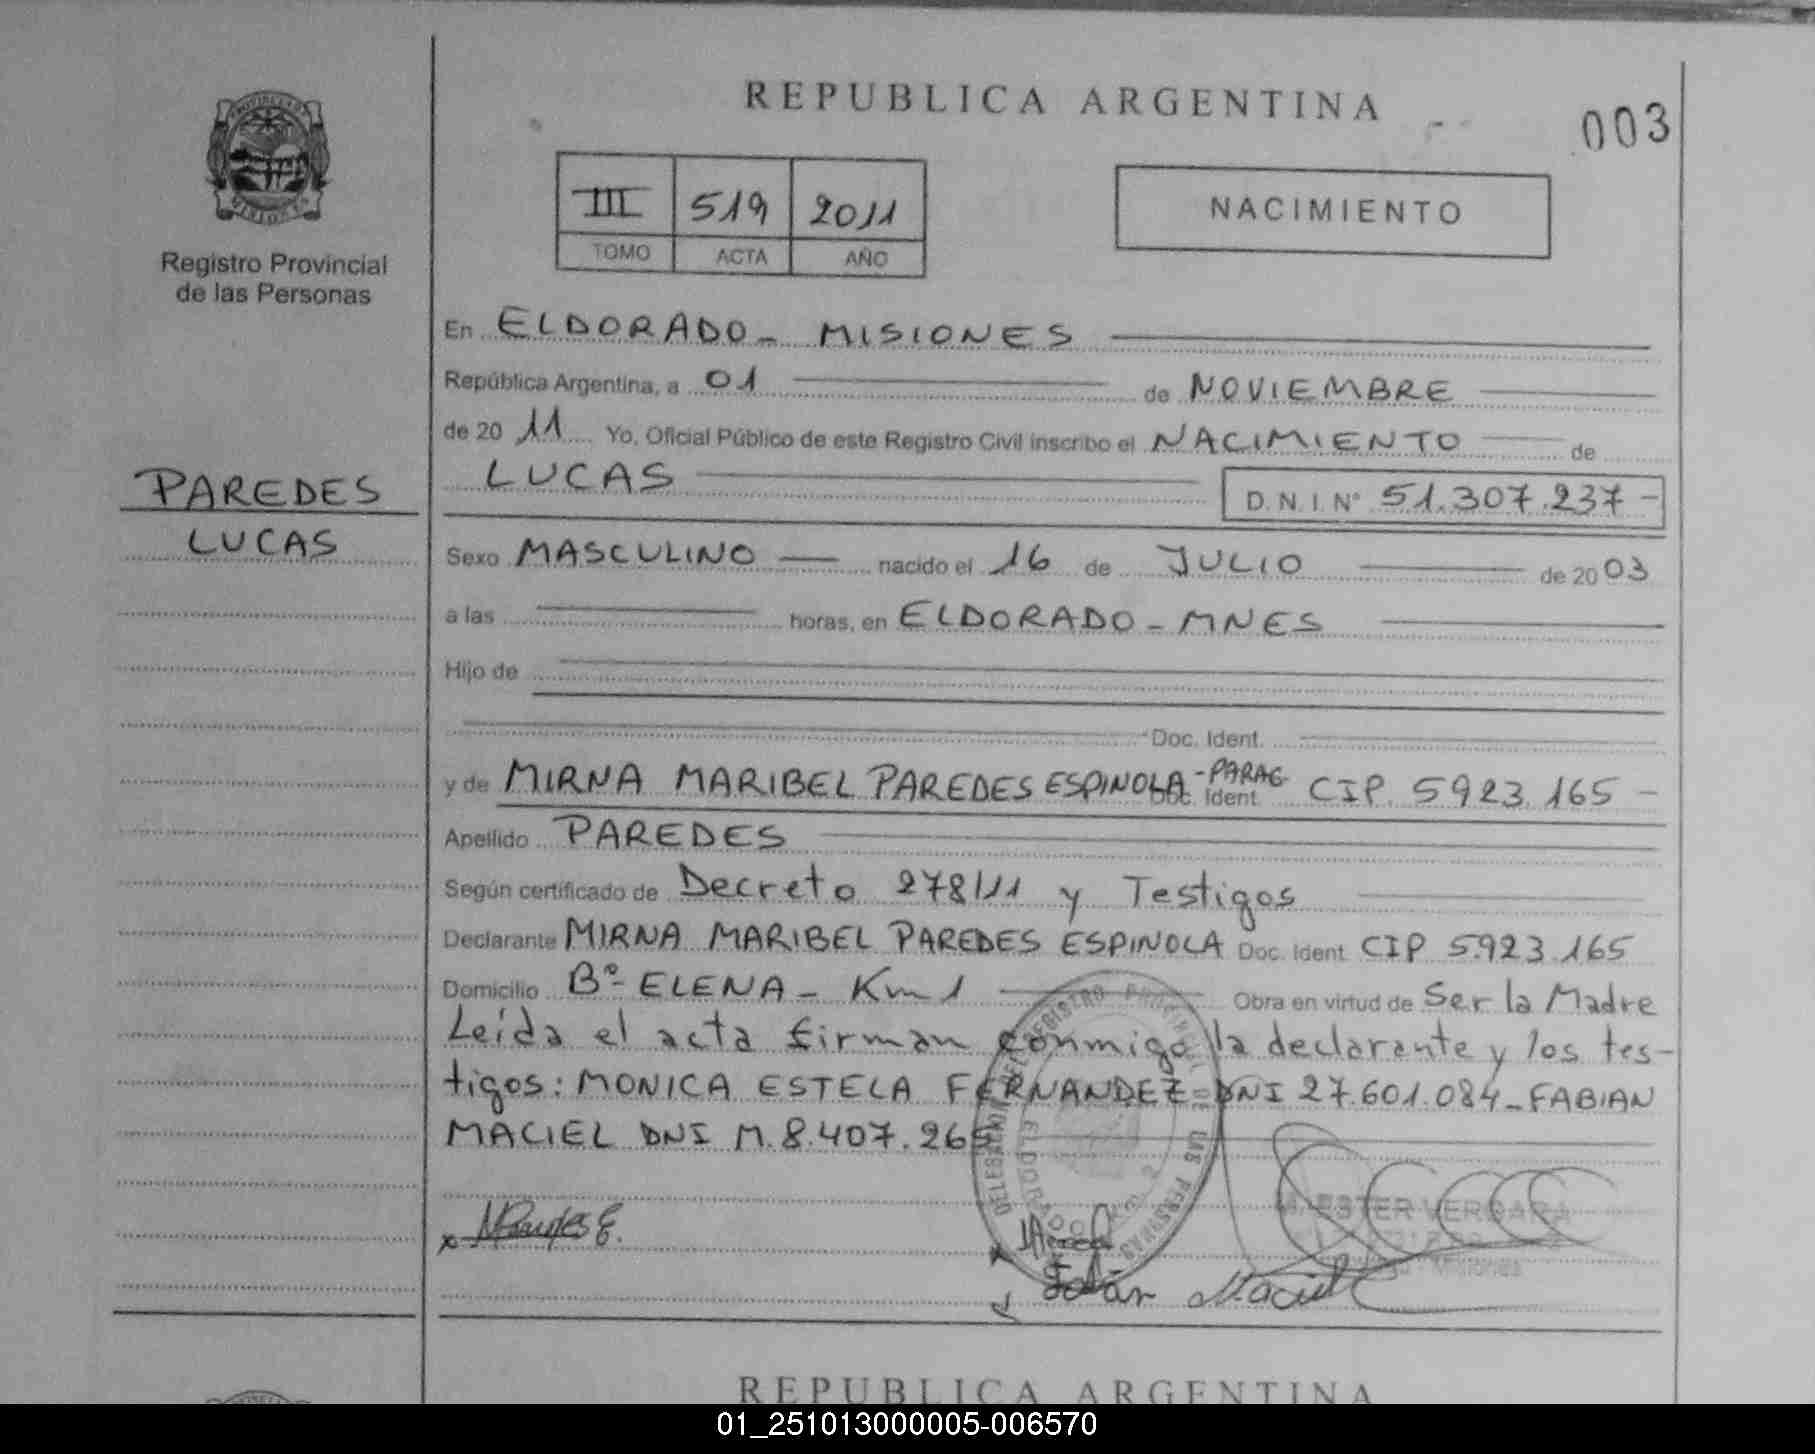 REPUBLICA ARGENTINA
003
III 519 2011
TOMO ACTA AÑO
NACIMIENTO
Registro Provincial
de las Personas
En ELDORADO - MISIONES
República Argentina, a 01 de NOVIEMBRE
de 20 11 Yo, Oficial Público de este Registro Civil inscribo el NACIMIENTO de
LUCAS D.N.I. Nº 51.307.237-
PAREDES
LUCAS
Sexo MASCULINO nacido el 16 de JULIO de 20 03
a las horas, en ELDORADO - MNES
Hijo de
Doc. Ident.
y de MIRNA MARIBEL PAREDES ESPINOLA -PARAG- Doc. Ident. CIP. 5923.165 -
Apellido PAREDES
Según certificado de Decreto 278/11 y Testigos
Declarante MIRNA MARIBEL PAREDES ESPINOLA Doc. Ident. CIP 5.923.165
Domicilio Bº- ELENA - Km 1 Obra en virtud de Ser la Madre
Leída el acta firman conmigo la declarante y los tes-
tigos: MONICA ESTELA FERNANDEZ DNI 27.601.084 - FABIAN
MACIEL DNI M. 8.407.265
MParedes E.
Fabián Maciel
M. ESTER VERGARA
Misiones
REPUBLICA ARGENTINA
01_251013000005-006570